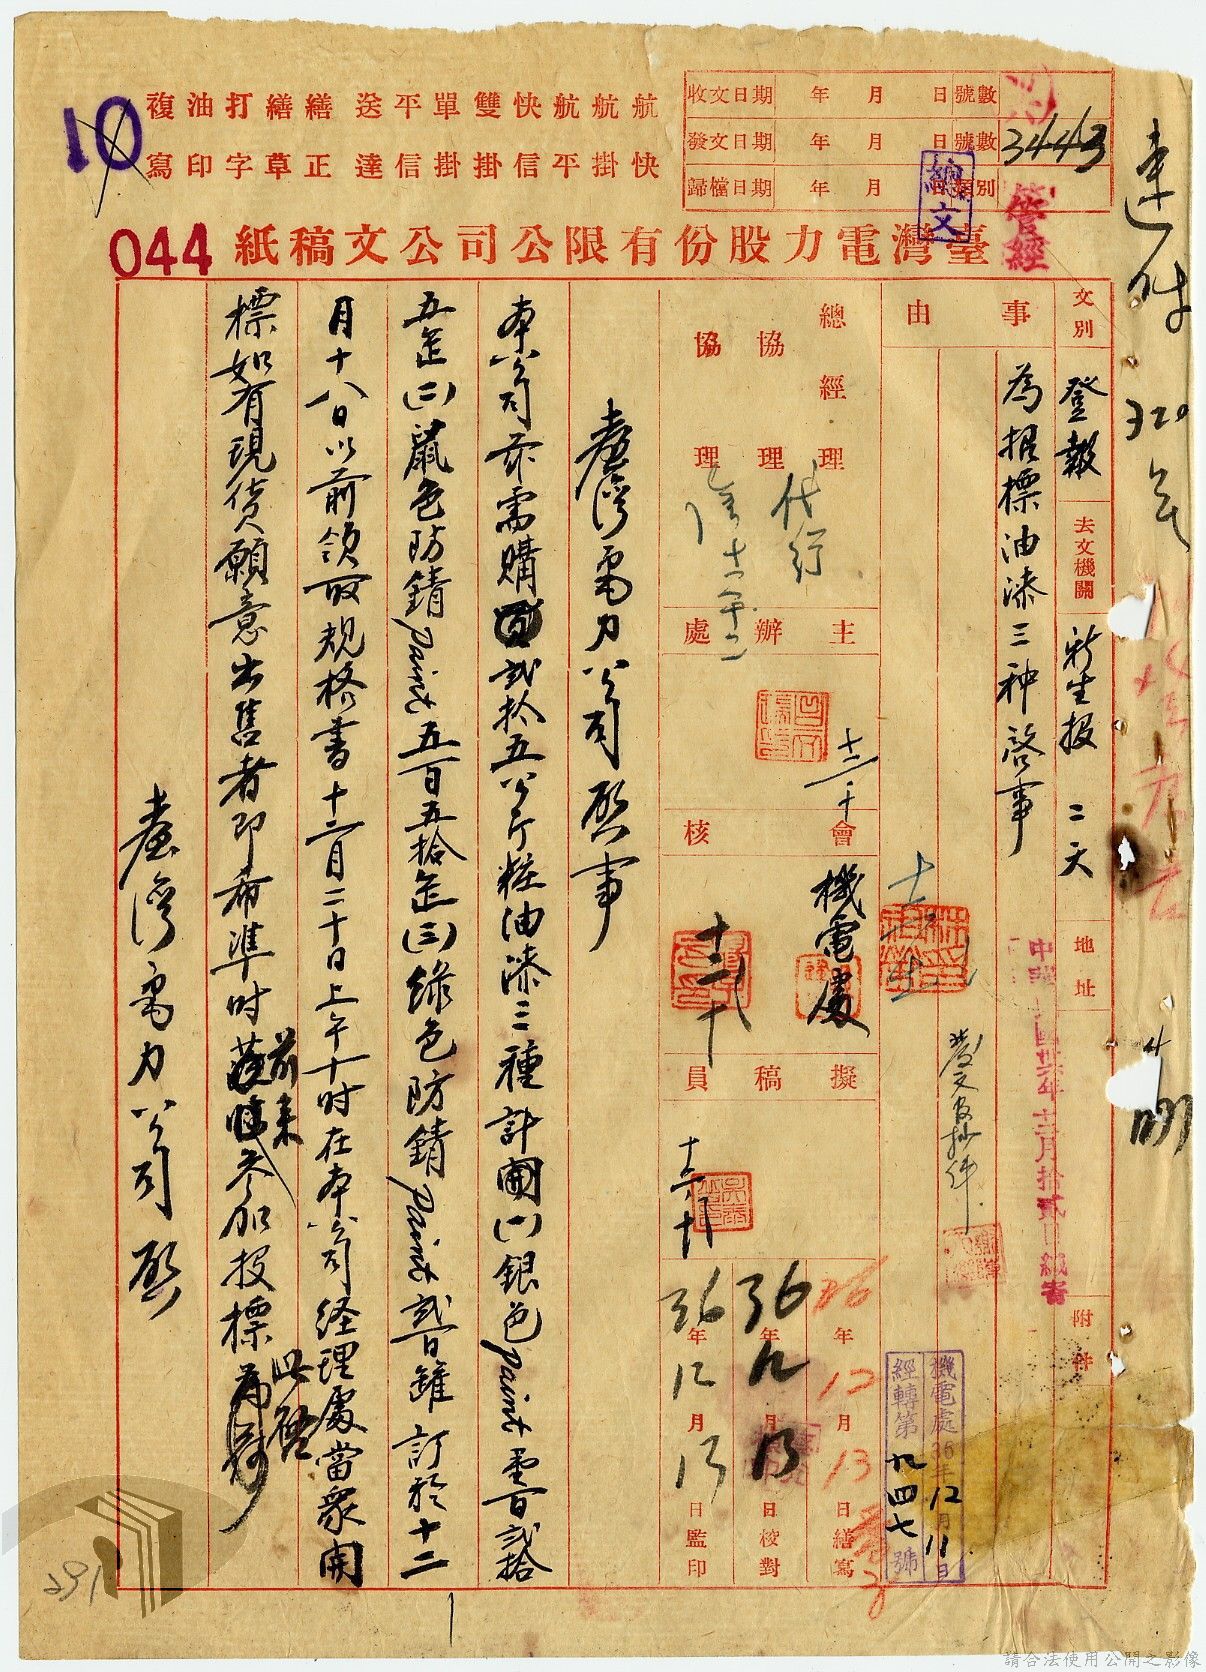 航 航 航 快 雙 單 平 送 繕 繕 打 油 複
快 掛 平 信 掛 掛 信 達 正 草 字 印 寫
收文日期 年 月 日 號數
發文日期 年 月 日 號數 3443
歸檔日期 年 月 日 類別
總文
管經
10
044
臺灣電力股份有限公司公文稿紙
速件
文別 登報
去文機關 新生報 二天
地址
附件
事由
為招標油漆三种啓事
中華民國卅六年十二月拾貳日繕寄
發文後抄件
機電處36年12月11日
經轉第九四七號
總經理
協理 代行
協理
主辦處
會核
機電處
擬稿員
36年12月13日繕寫
36年12月13日校對
36年12月13日監印
臺灣電力公司啟事
本公司茲需購貳拾五公斤粧油漆三種計開(一)銀色paint壹百貳拾
五罐(二)鼠色防銹paint五百五拾罐(三)綠色防銹paint貳百罐訂於十二
月十八日以前領取規格書十二月二十日上午十时在本公司經理處當眾開
標如有現貨願意出售者即希準时前來參加投標為荷此啓
臺灣電力公司啟
請合法使用公開之影像